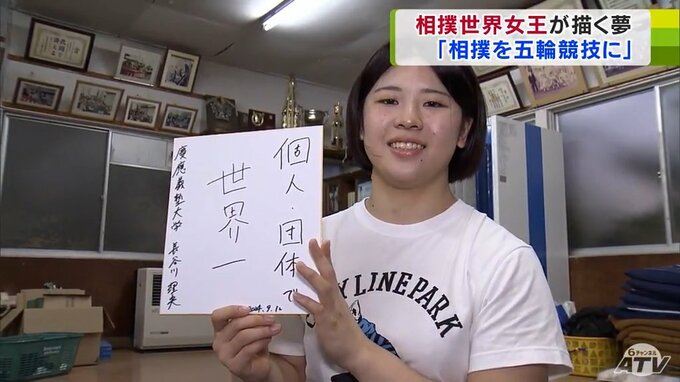 相撲世界女王が描く夢
「相撲を五輪競技に」
個人・団体で
世界一
慶應義塾大学 長谷川理央
2024.9.12
LINEPARK
6チャンネル
ATV